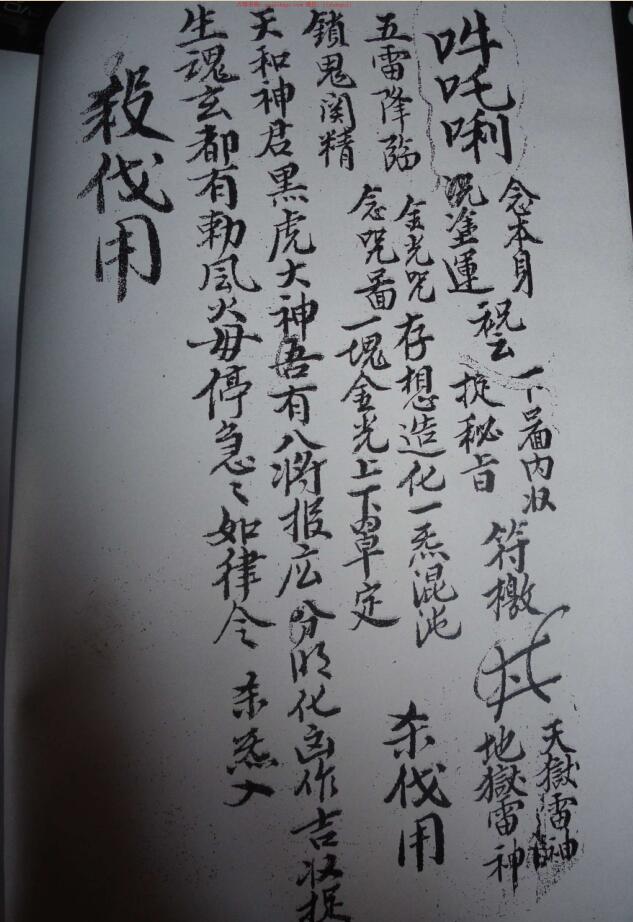 吽吒唎
念本身
咒塗運
祝云
一下畾内收
掟秘旨
符檄
天獄雷神
地獄雷神
五雷降臨
金光咒存想造化一炁混沌
杀伐用
鎖鬼関精
念咒畾一塊金光上下罩定
天和神君黑虎大神吾有八将报应分明化凶作吉收捉
生魂玄都有勅風火毋停急々如律令
杀炁入
殺伐用